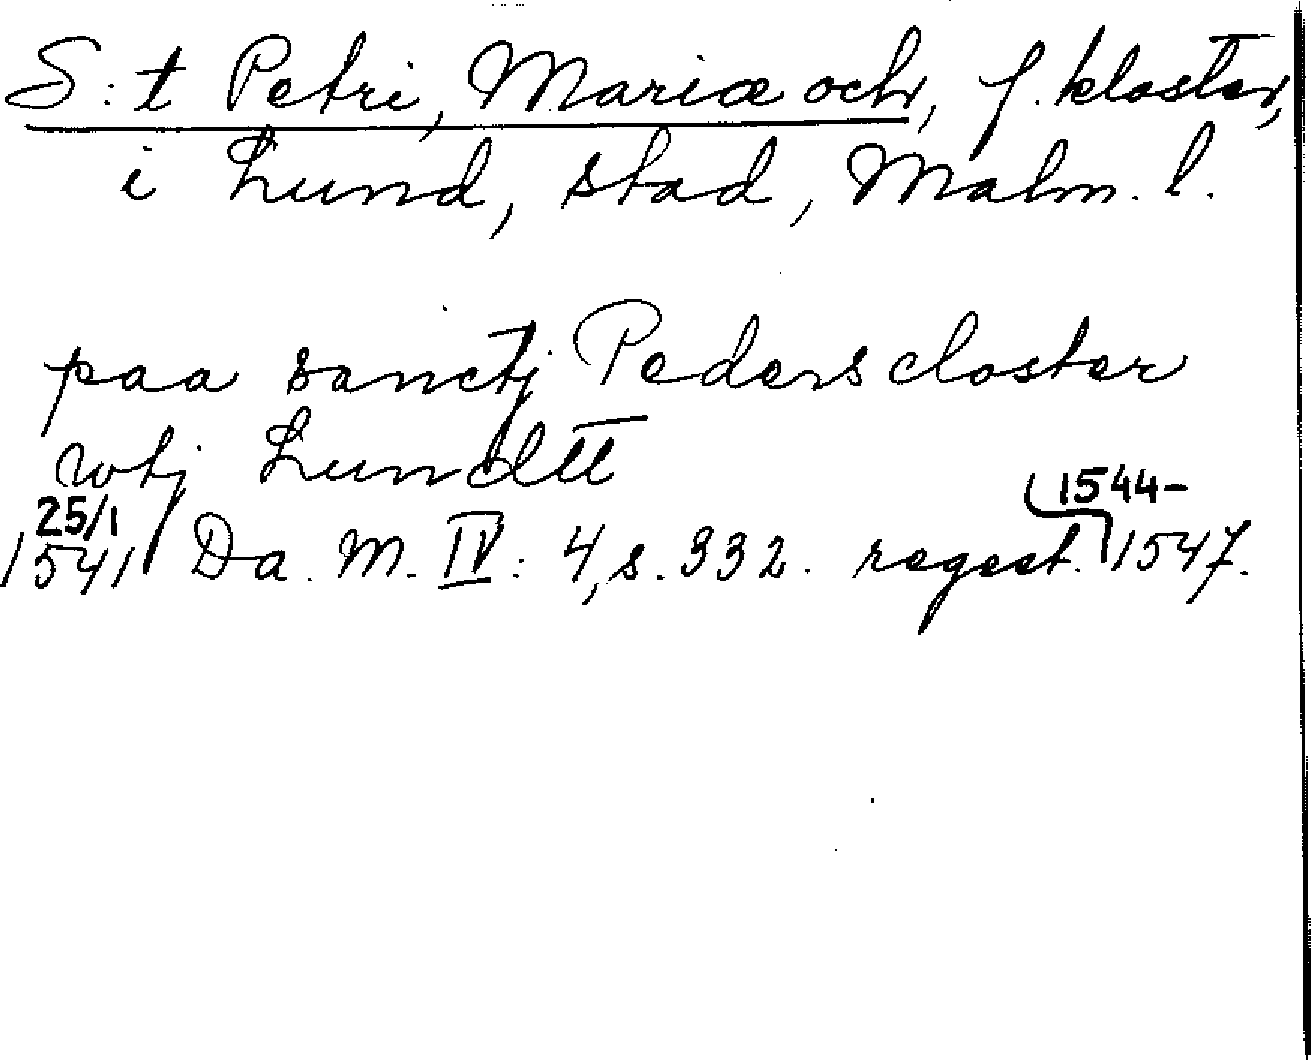 S:t Petri, Mariæ och, f. kloster,
i Lund, stad, Malm. l.
paa sanctj Peders closter
wtj Lundtt
25/1 1544-
1541 Da. M. IV: 4, s. 332. regest. 1547.